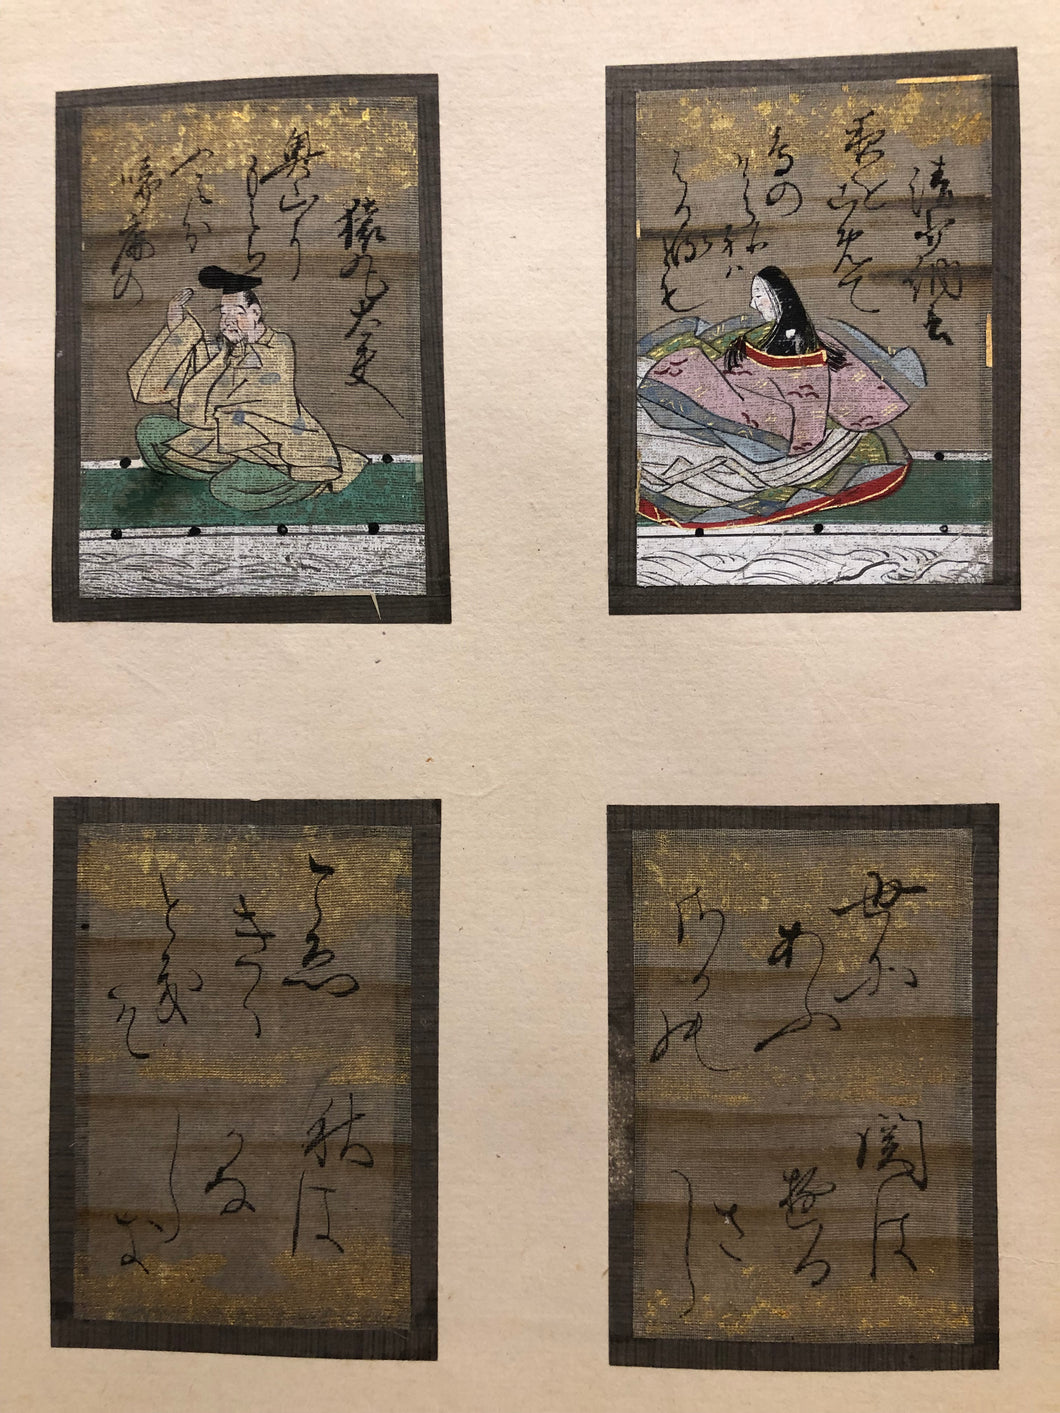 清少納言
夜をこめて
鳥の
そらねハ
はかるとも
猿丸大夫
奥山に
もみち
ふみ分
啼鹿の
世に
あふ
さかの
関は
ゆる
さ
し
こゑ
きく
とき
そ
秋は
かな
し
き